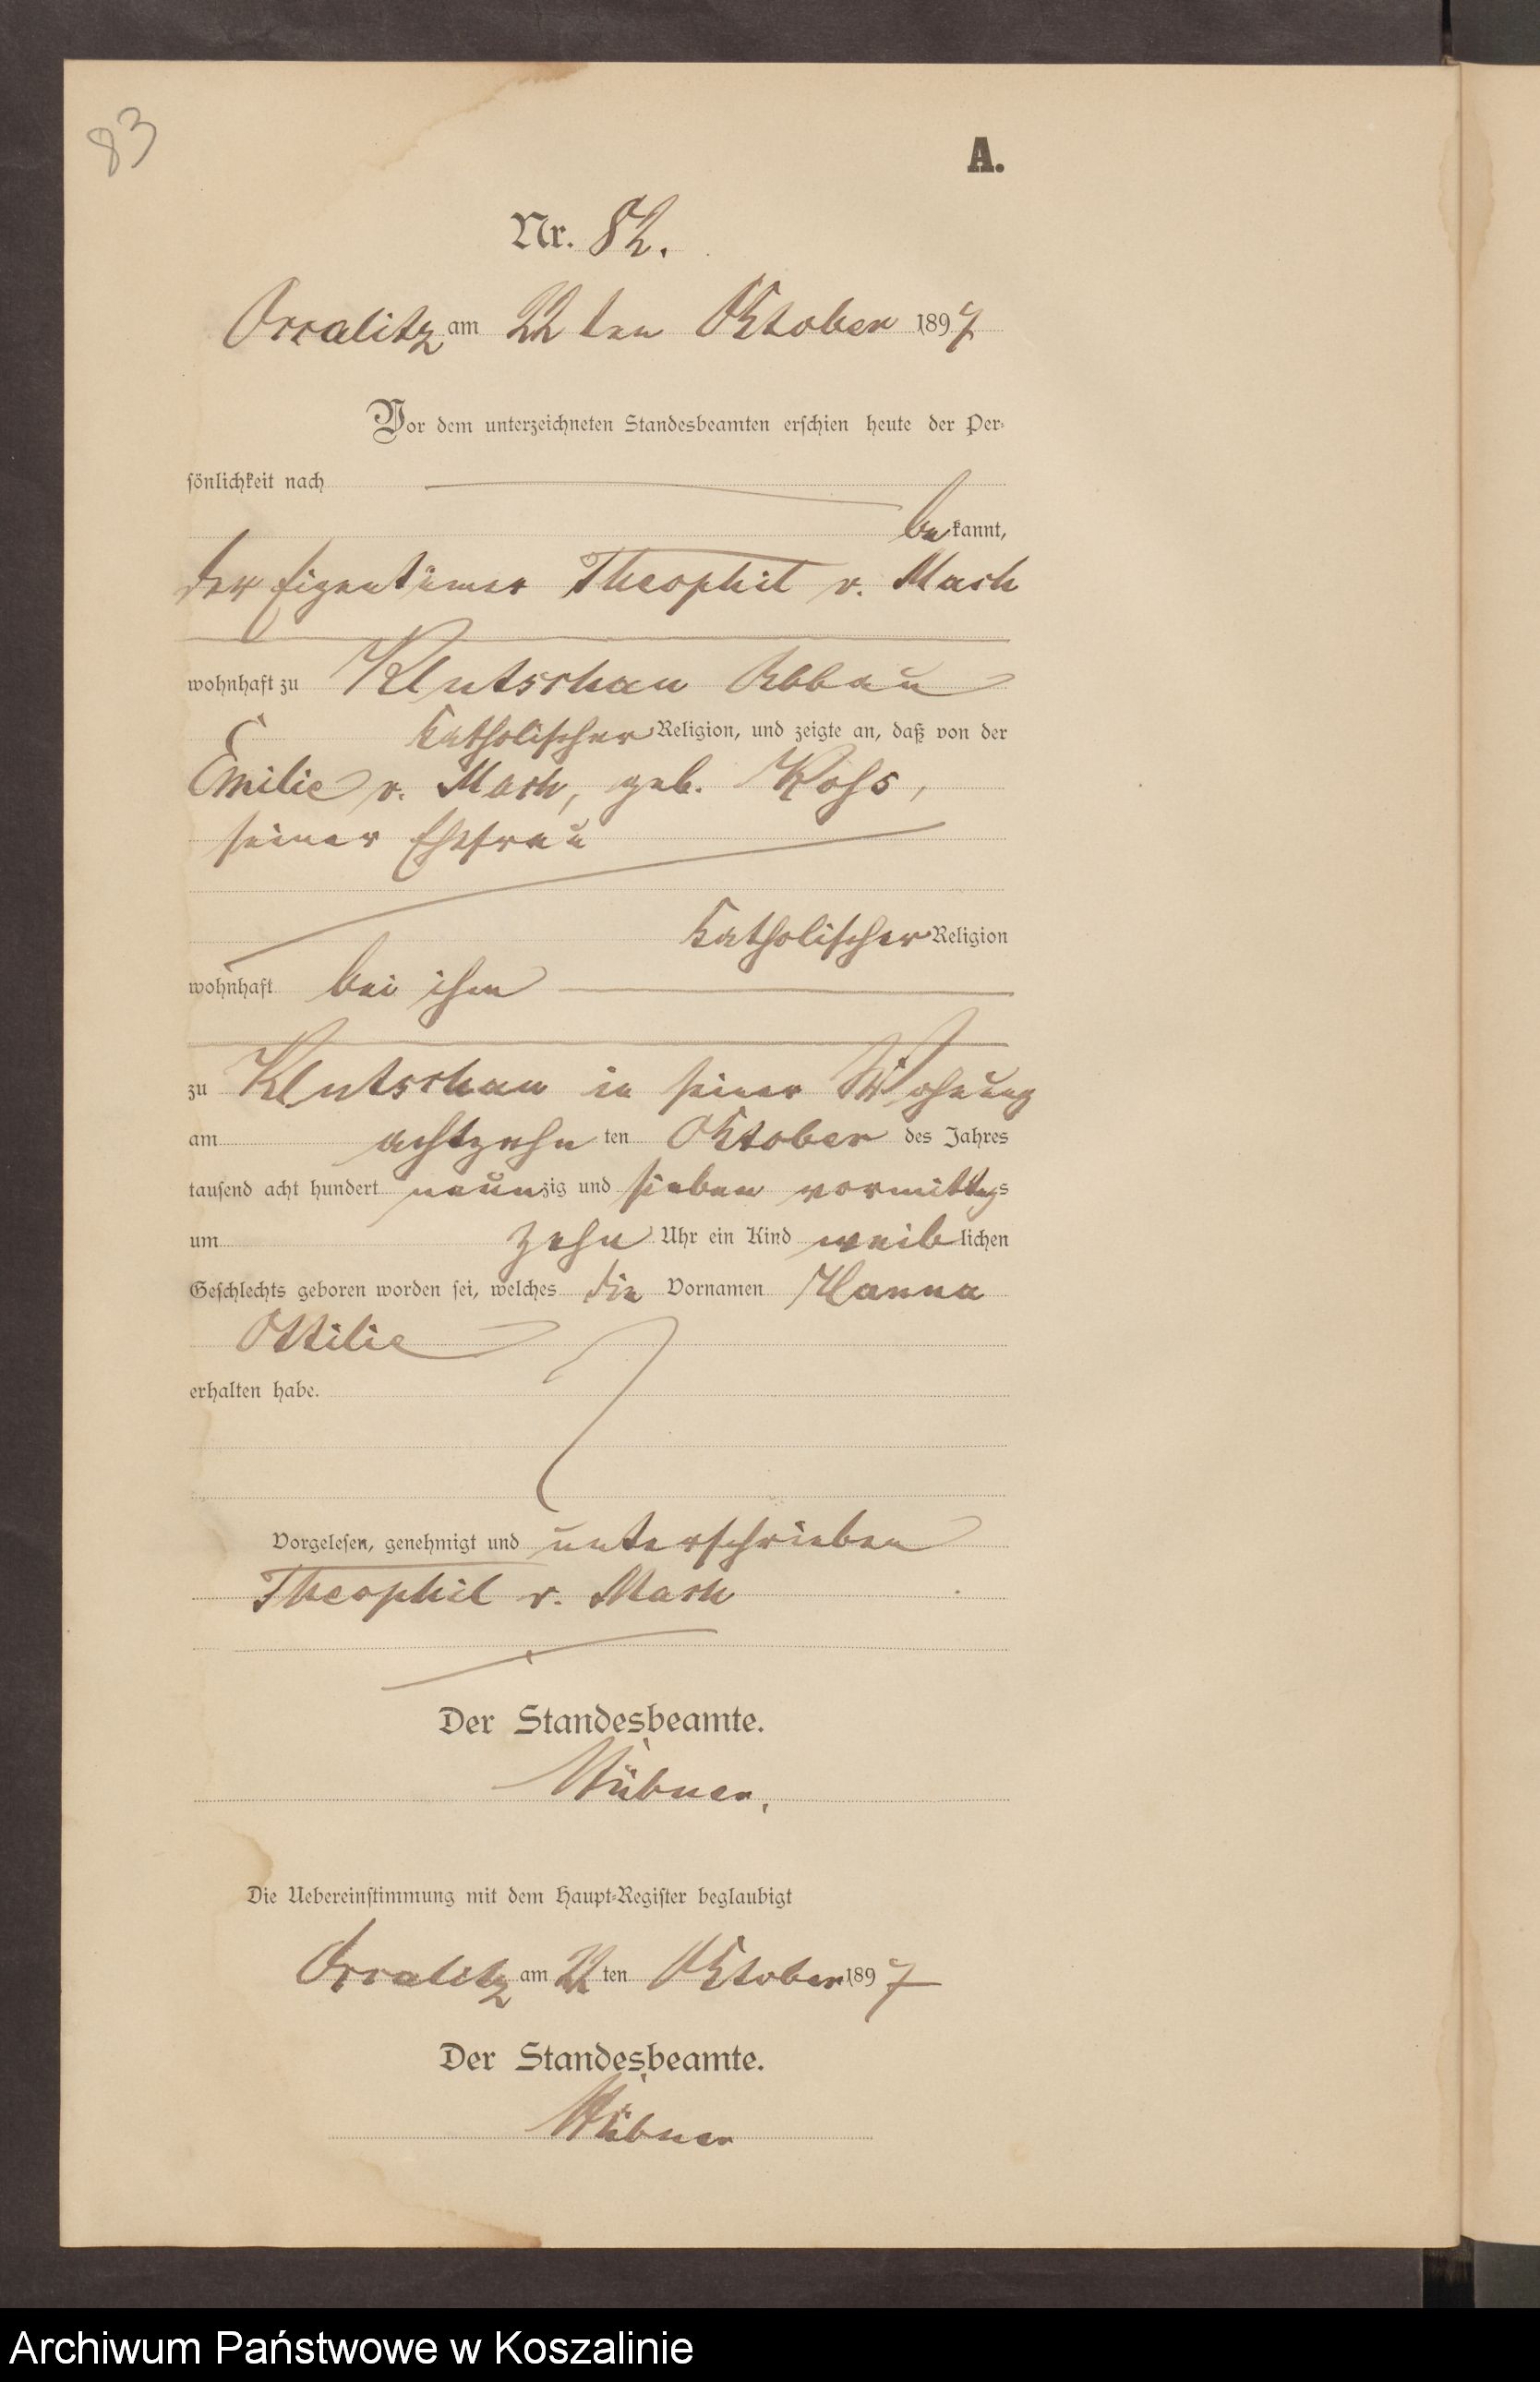 83
A.
Nr. 82.
Oscalitz am 22 ten Oktober 1897
Vor dem unterzeichneten Standesbeamten erschien heute der Per-
sönlichkeit nach
bekannt,
der Eigentümer Theophil v. Mach
wohnhaft zu Klutschau Abbau
katholischer Religion, und zeigte an, daß von der
Emilie v. Mach, geb.
seiner Ehefrau
katholischer Religion
wohnhaft bei ihm
zu Klutschau in seiner Wohnung
am achtzehn ten Oktober des Jahres
tausend acht hundert neunzig und sieben vormittags
um zehn Uhr ein Kind weiblichen
Geschlechts geboren worden sei, welches die Vornamen Hanna
Ottilie
erhalten habe.
Vorgelesen, genehmigt und unterschrieben
Theophil v. Mach
Der Standesbeamte.
Hübner.
Die Uebereinstimmung mit dem Haupt-Register beglaubigt
Oscalitz am 22 ten Oktober 1897
Der Standesbeamte.
Hübner
Archiwum Państwowe w Koszalinie